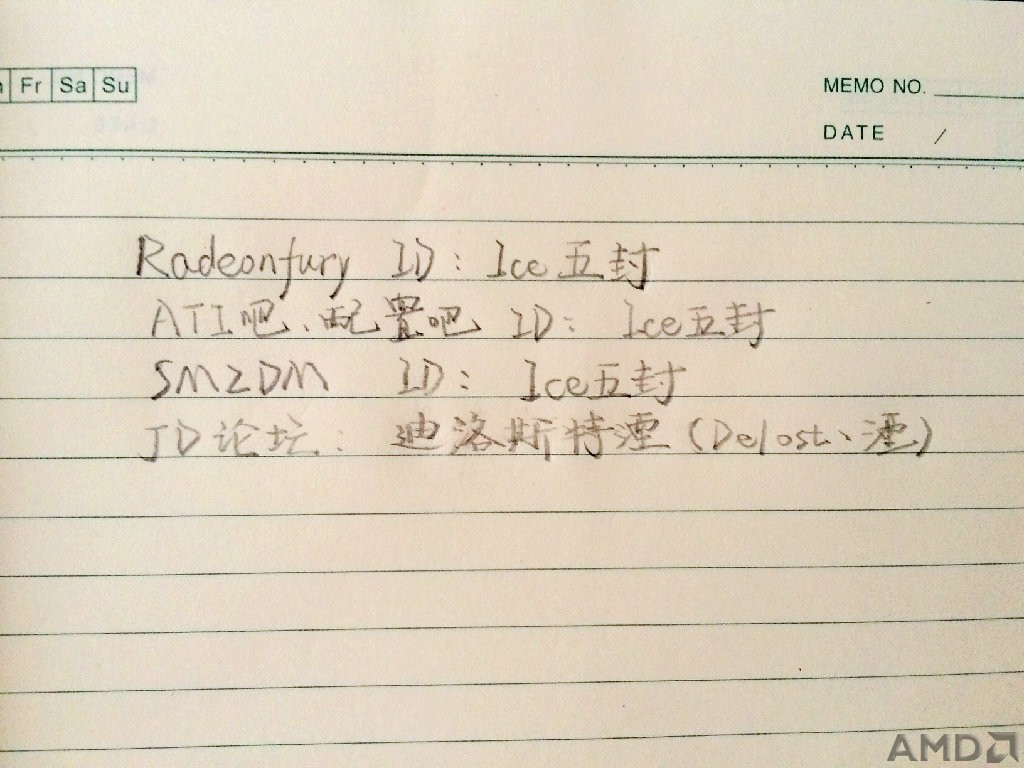 Fr Sa Su
MEMO NO.
DATE /
Radeonfury ID: Ice五封
ATI吧、配置吧 ID: Ice五封
SMZDM ID: Ice五封
JD论坛: 迪洛斯特湮(Delost、湮)
AMD